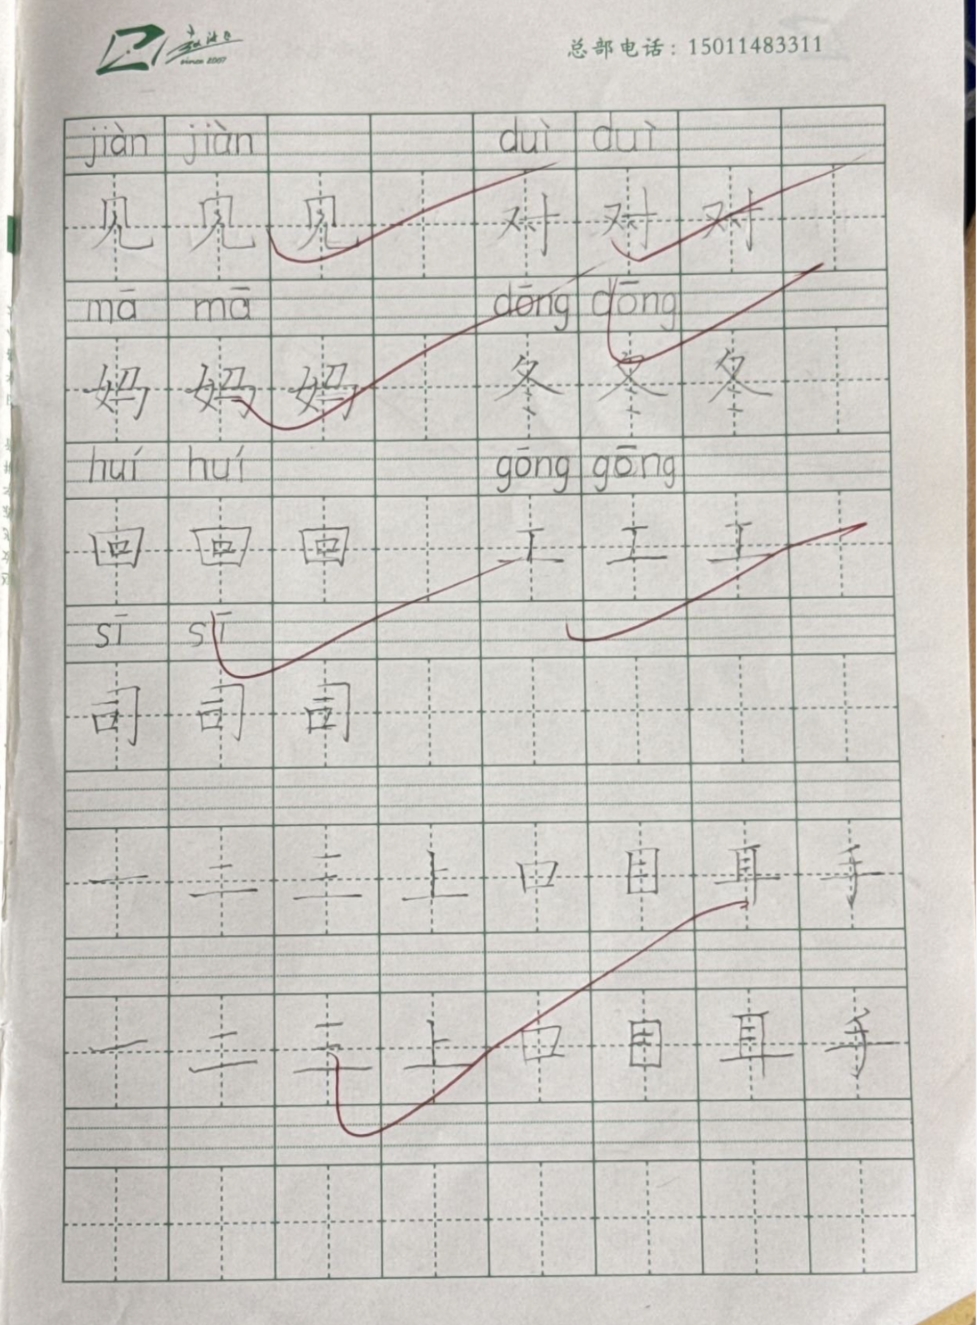 since 2007
总部电话：15011483311
jiàn jiàn duì duì
见 见 见 对 对 对
mā mā dōng dōng
妈 妈 妈 冬 冬 冬
huí huí gōng gōng
回 回 回 工 工 工
sī sī
司 司 司
一 二 三 上 口 目 耳 手
一 二 三 上 口 目 耳 手